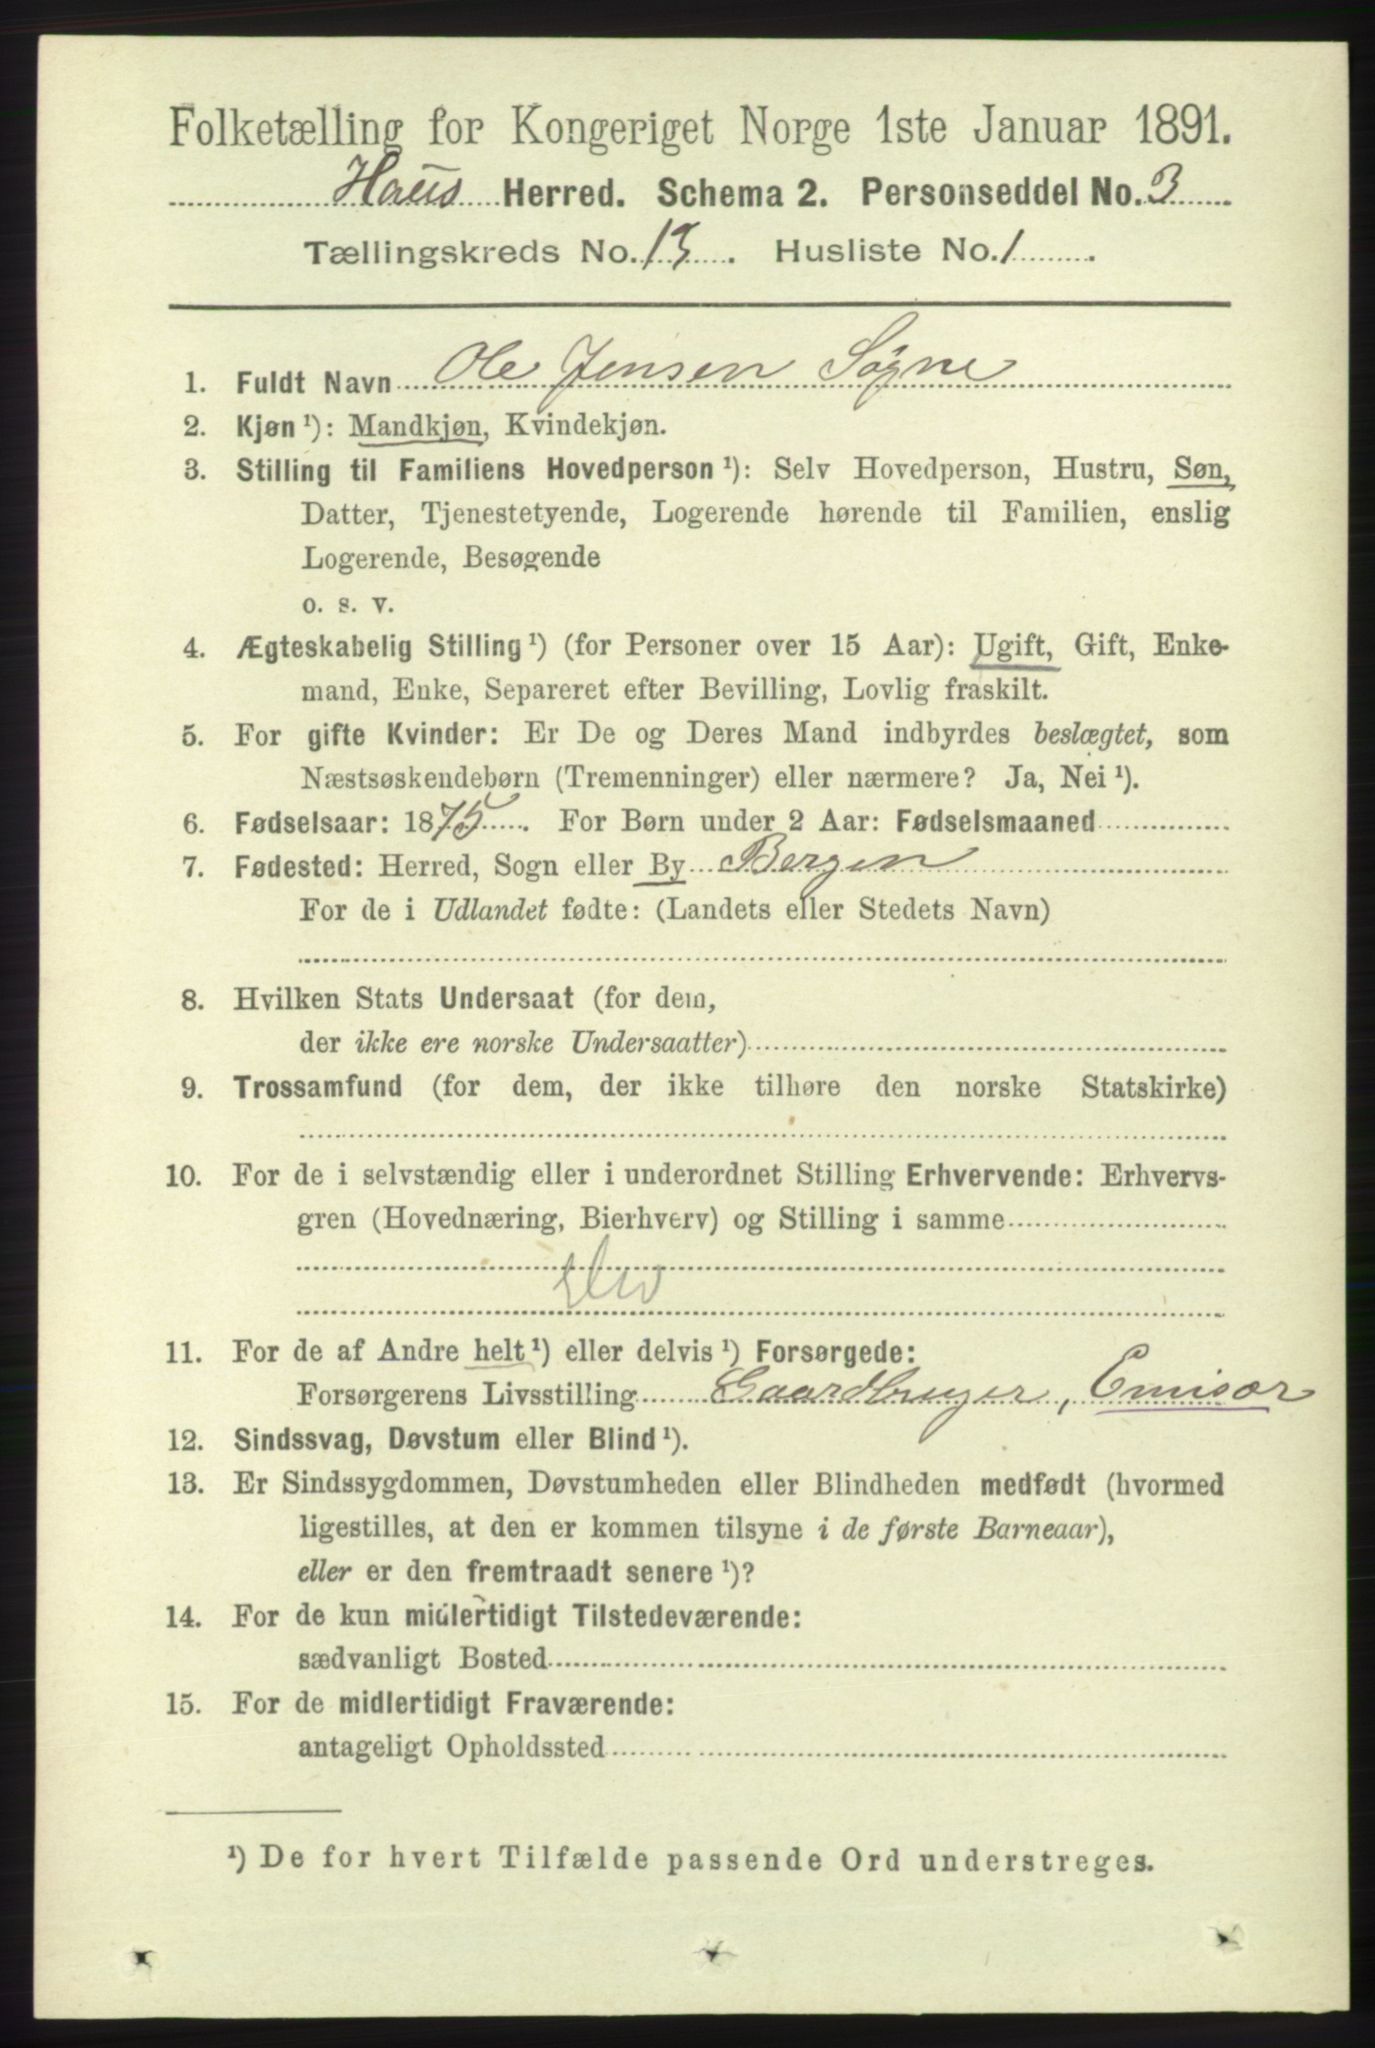 Folketælling for Kongeriget Norge 1ste Januar 1891.
Haus Herred. Schema 2. Personseddel No. 3
Tællingskreds No. 13. Husliste No. 1.
1. Fuldt Navn Ole Jensen Søgne
2. Kjøn ¹): Mandkjøn, Kvindekjøn.
3. Stilling til Familiens Hovedperson ¹): Selv Hovedperson, Hustru, Søn,
Datter, Tjenestetyende, Logerende hørende til Familien, enslig
Logerende, Besøgende
o. s. v.
4. Ægteskabelig Stilling ¹) (for Personer over 15 Aar): Ugift, Gift, Enke-
mand, Enke, Separeret efter Bevilling, Lovlig fraskilt.
5. For gifte Kvinder: Er De og Deres Mand indbyrdes beslægtet, som
Næstsøskendebørn (Tremenninger) eller nærmere? Ja, Nei ¹).
6. Fødselsaar: 1875. For Børn under 2 Aar: Fødselsmaaned
7. Fødested: Herred, Sogn eller By Bergen
For de i Udlandet fødte: (Landets eller Stedets Navn)
8. Hvilken Stats Undersaat (for dem,
der ikke ere norske Undersaatter)
9. Trossamfund (for dem, der ikke tilhøre den norske Statskirke)
10. For de i selvstændig eller i underordnet Stilling Erhvervende: Erhvervs-
gren (Hovednæring, Bierhverv) og Stilling i samme
11. For de af Andre helt ¹) eller delvis ¹) Forsørgede:
Forsørgerens Livsstilling Gaardbruger, Emisær
12. Sindssvag, Døvstum eller Blind ¹).
13. Er Sindssygdommen, Døvstumheden eller Blindheden medfødt (hvormed
ligestilles, at den er kommen tilsyne i de første Barneaar),
eller er den fremtraadt senere ¹)?
14. For de kun midlertidigt Tilstedeværende:
sædvanligt Bosted
15. For de midlertidigt Fraværende:
antageligt Opholdssted
¹) De for hvert Tilfælde passende Ord understreges.